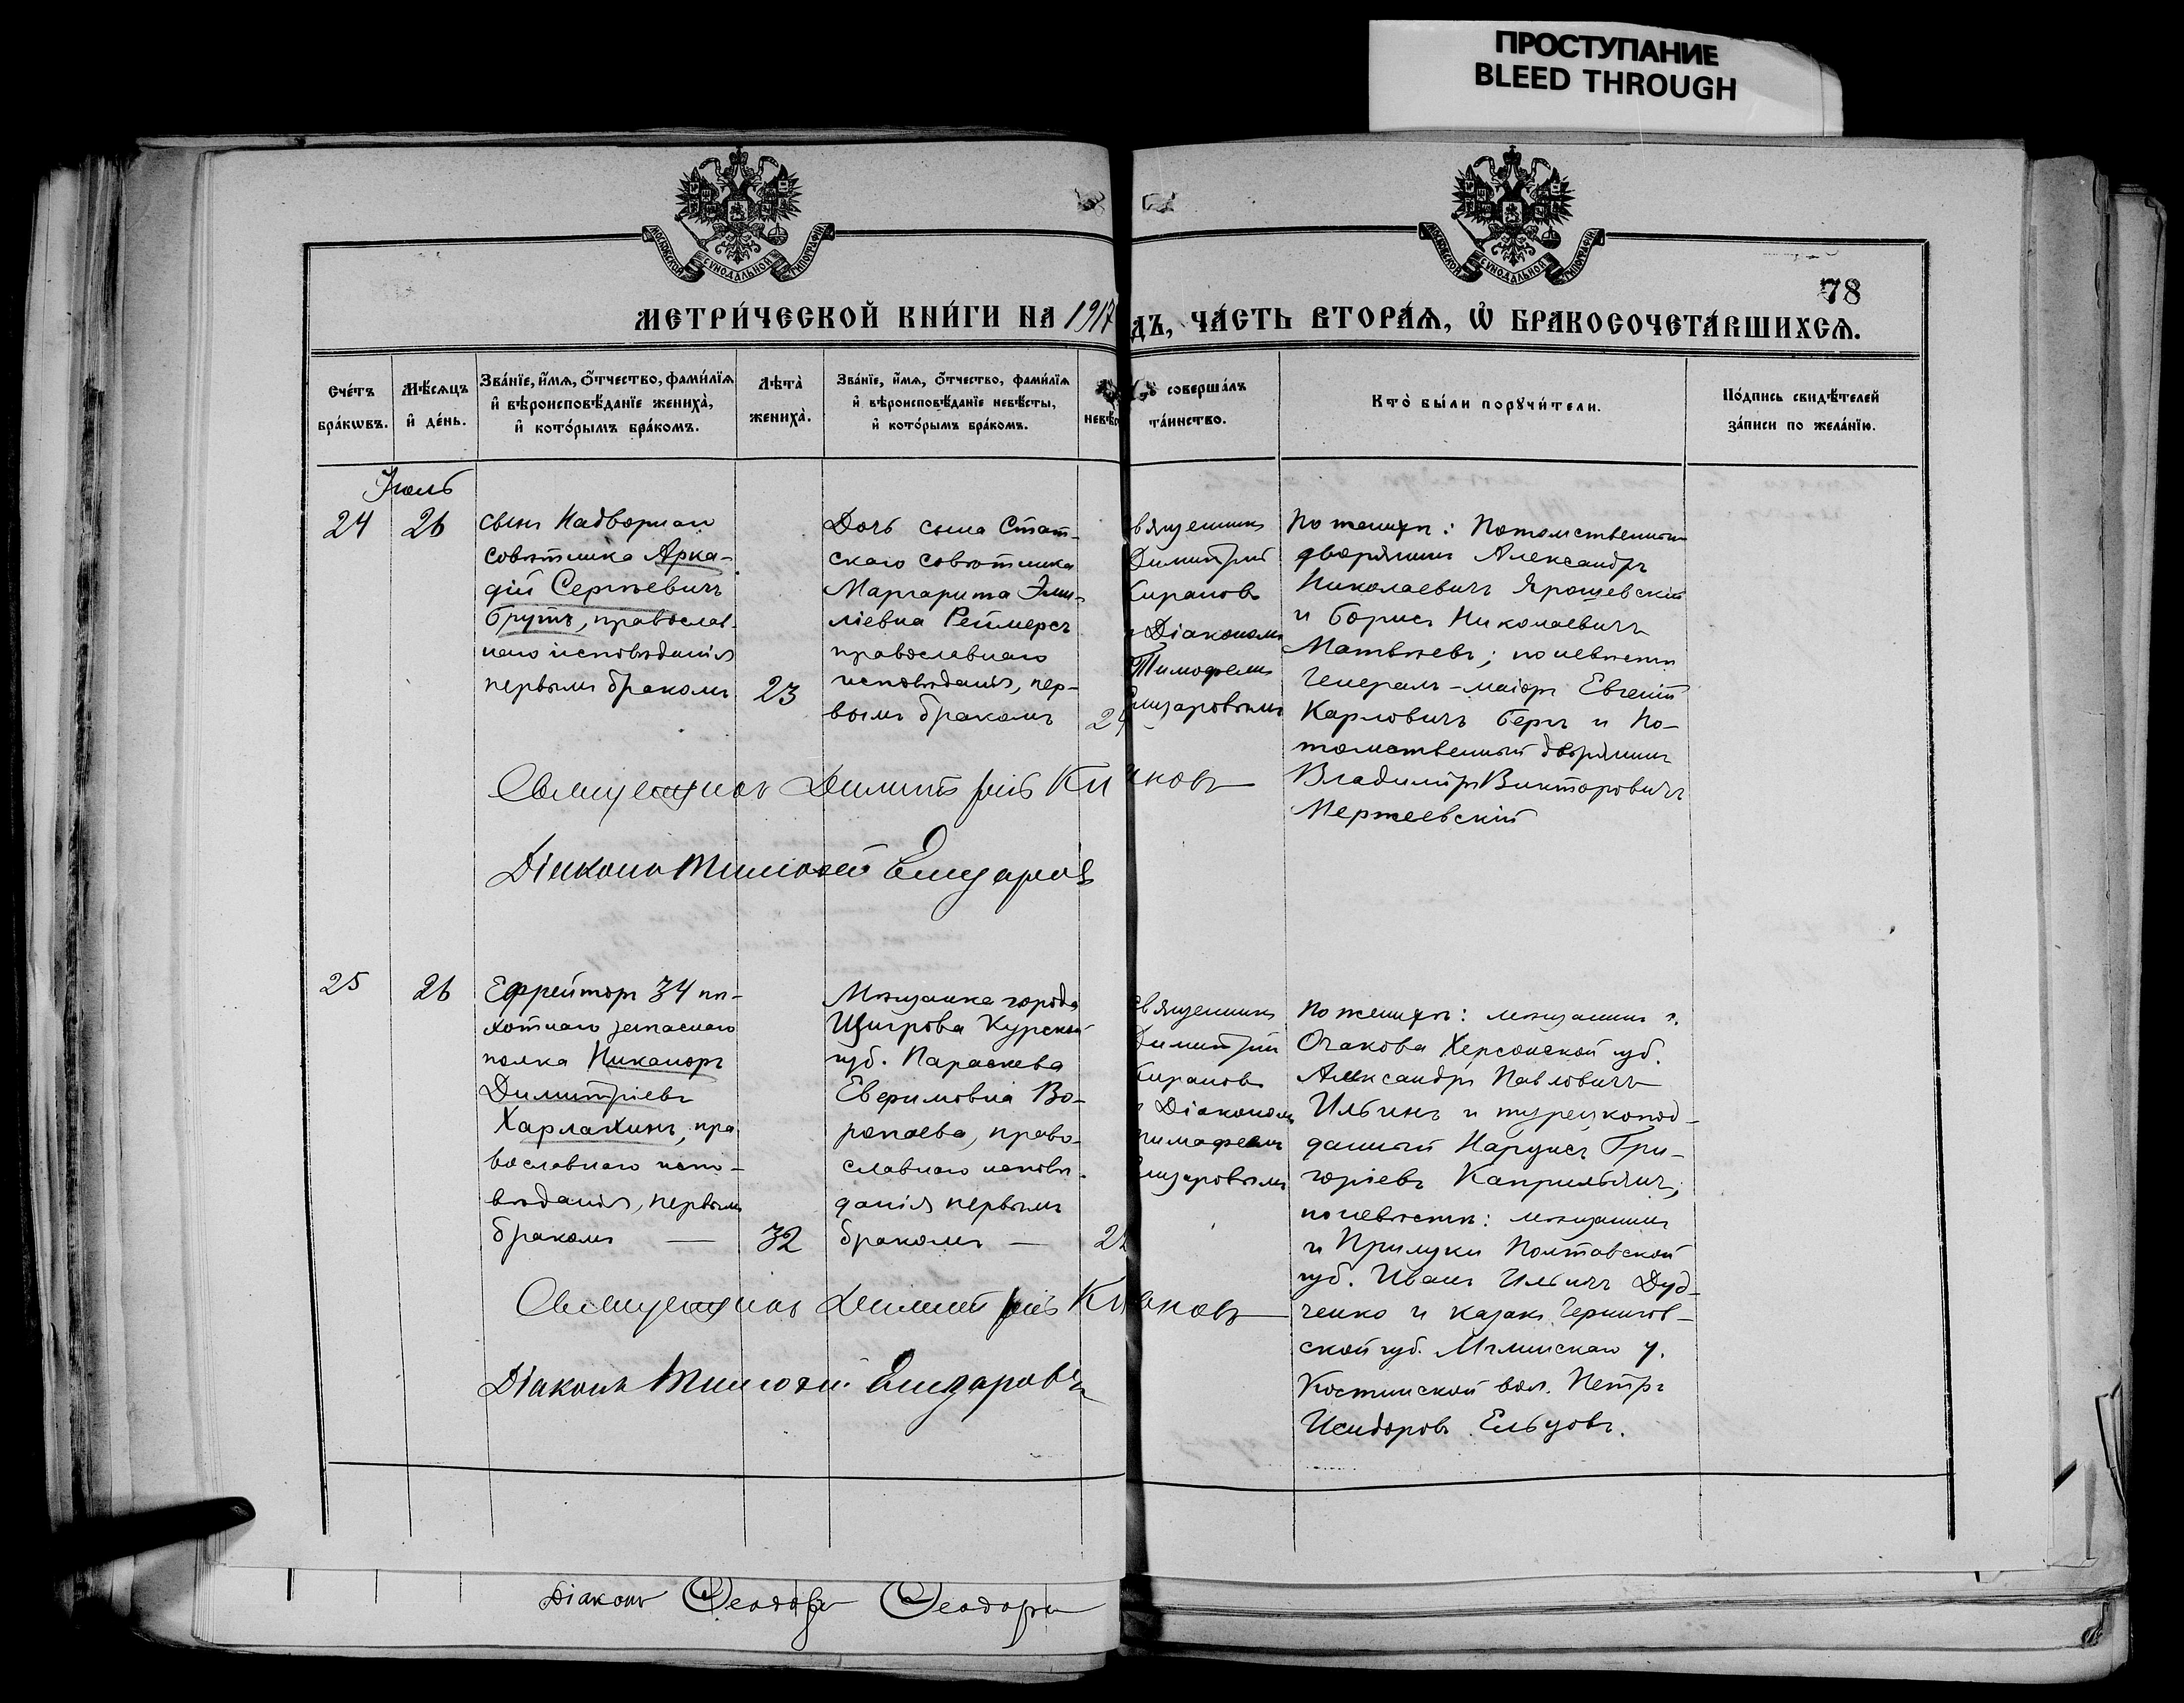 ПРОСТУПАНИЕ
BLEED THROUGH
МОСКОВСКОЙ СѴНОДАЛЬНОЙ ТИПОГРАФІИ
МОСКОВСКОЙ СѴНОДАЛЬНОЙ ТИПОГРАФІИ
78
МЕТРИ́ЧЕСКОЙ КНИ́ГИ НА 1917
ДЪ, ЧА́СТЬ ВТОРА́Ѧ, Ѡ҆ БРАКОСОЧЕТА́ВШИХСѦ.
Сче́тъ
бра́кѡвъ.
Мѣ́сѧцъ
и҆ де́нь.
Зва́нїе, и҆́мѧ, о҆́тчество, фами́лїѧ
и҆ вѣроисповѣ́данїе жениха̀,
и҆ кото́рымъ бра́комъ.
Лѣта̀
жениха̀.
Зва́нїе, и҆́мѧ, о҆́тчество, фами́лїѧ
и҆ вѣроисповѣ́данїе невѣ́сты,
и҆ кото́рымъ бра́комъ.
невѣ́с
соверша́лъ
та́инство.
Кто̀ бы́ли порꙋчи́тели.
По́дпись свидѣ́телей
за́писи по жела́нїю.
Іюль
24
26
сынъ Надворнаго
совѣтника Арка-
дій Сергѣевичъ
Брутъ, православ-
наго исповѣданія
первымъ бракомъ
23
Дочь сына Стат-
скаго совѣтника
Маргарита Эми-
ліевна Реймерсъ
православнаго
исповѣданія, пер-
вымъ бракомъ
24
священникъ
Димитрій
Кирановъ
и Діакономъ
Тимофеемъ
Елизаровымъ
По женихѣ: Потомственный
дворянинъ Александръ
Николаевичъ Ярошевскій
и Борисъ Николаевичъ
Матвѣевъ; по невѣстѣ
Генералъ-маіоръ Евгеній
Карловичъ Бергъ и По-
томственный дворянинъ
Владиміръ Викторовичъ
Мержеевскій
Священникъ Димитрій Ки
ановъ
Діаконъ Тимофей Елизаровъ
25
26
Ефрейторъ 34 пѣ-
хотнаго запаснаго
полка Никаноръ
Димитріевъ
Харлахинъ, пра
вославнаго испо-
вѣданія, первымъ
бракомъ —
32
Мѣщанка города
Щигрова Курской
губ. Параскева
Евфимовна Во-
ропаева, право-
славнаго исповѣ
данія первымъ
бракомъ —
22
священникъ
Димитрій
Кирановъ
и Діакономъ
Тимофеемъ
Елизаровымъ
По женихѣ: мѣщанинъ г.
Очакова Херсонской губ.
Александръ Павловичъ
Ильинъ и турецкопод-
данный Наргисъ Гри-
горіевъ Каприльянъ;
по невѣстѣ: мѣщанинъ
г. Прилуки Полтавской
губ. Иванъ Ильичъ Дуд-
ченко и казакъ Чернигов-
ской губ. Мглинскаго у.
Костинской вол. Петръ
Исидоровъ Ельцовъ.
Священникъ Димитрій Ки
ановъ
Діаконъ Тимофей Елизаровъ
Діаконъ Ѳеодоръ